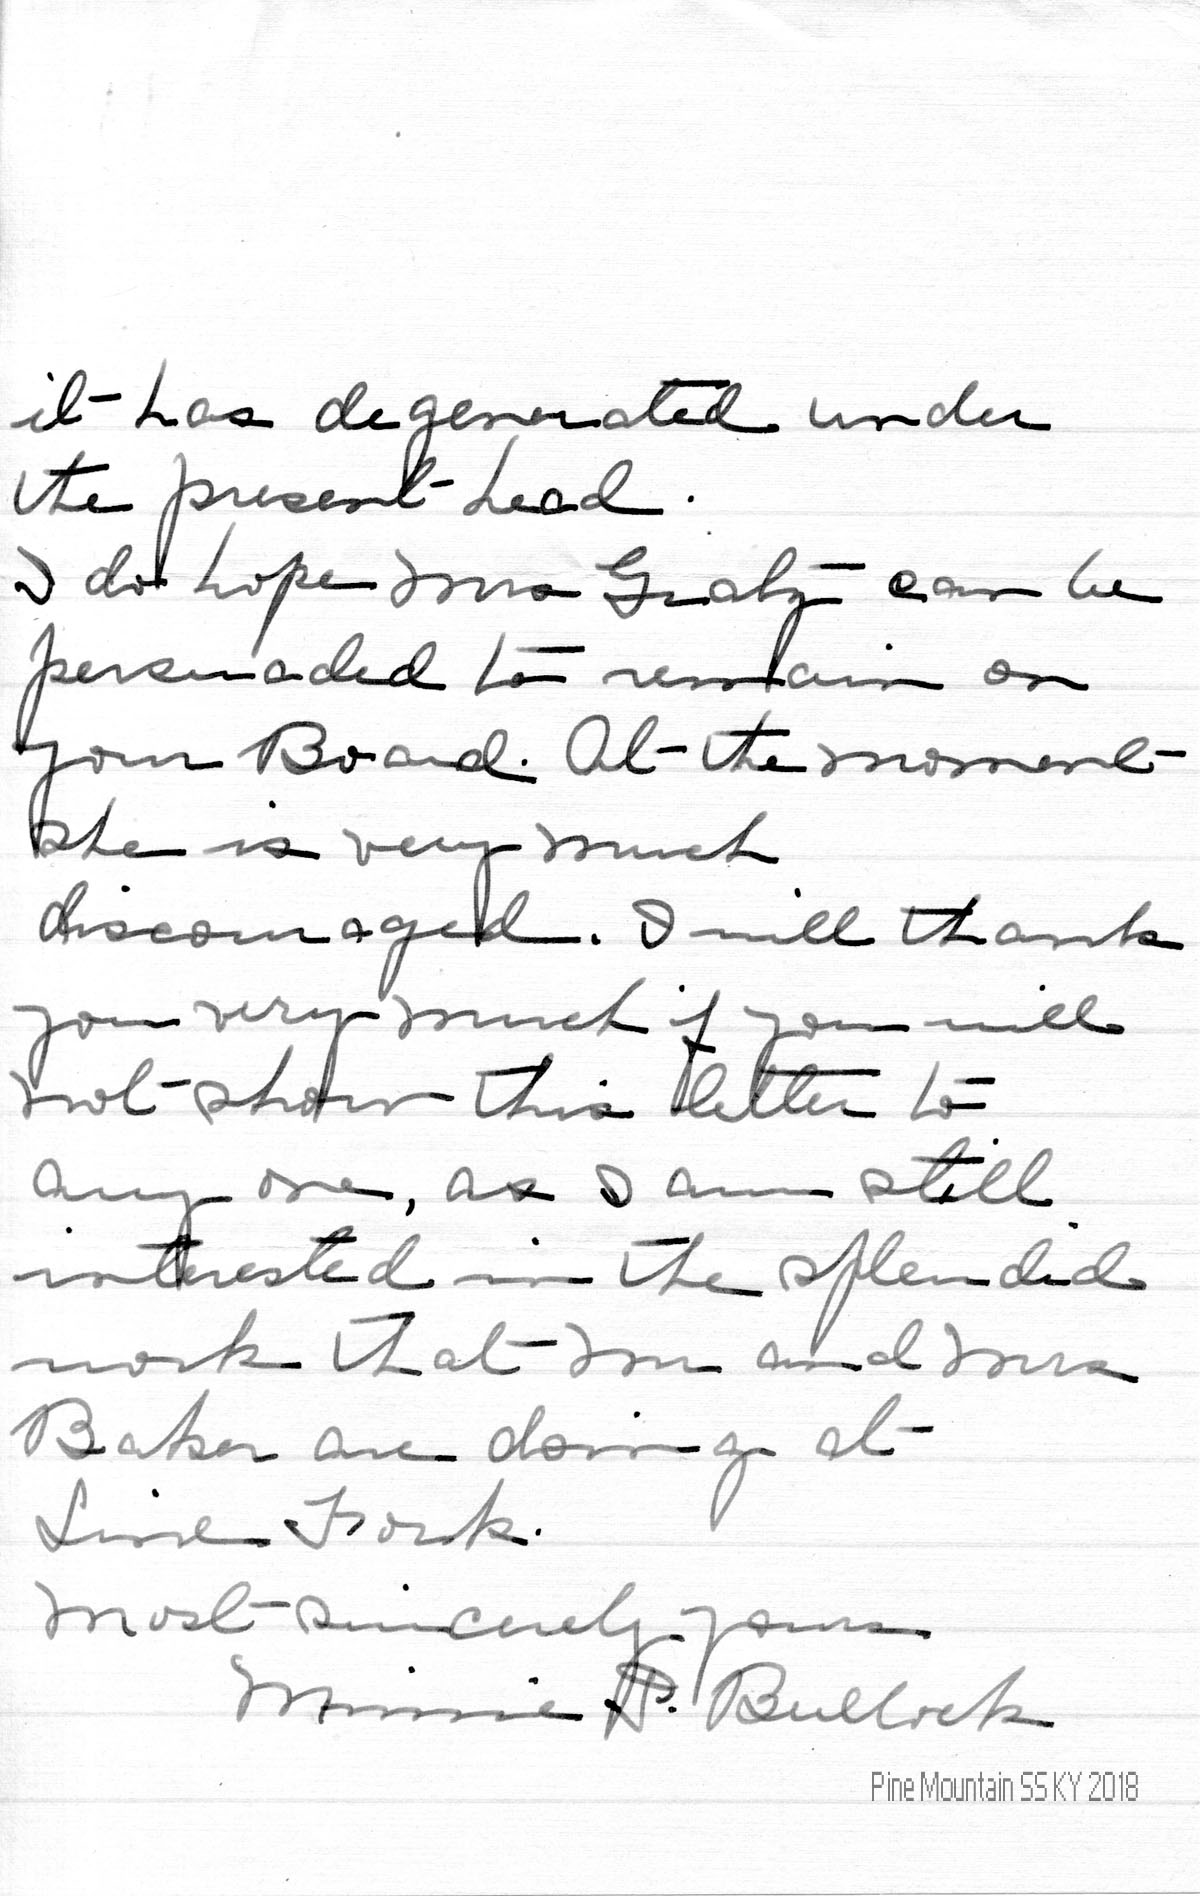 it has degenerated under
the present head.
I do hope Mrs Gratz can be
persuaded to remain on
your Board. At the moment
she is very much
discouraged. I will thank
you very much if you will
not show this letter to
any one, as I am still
interested in the splendid
work that Mr and Mrs
Baker are doing at
Line Fork.
Most sincerely yours
Minnie P. Bullock
Pine Mountain SS KY 2018